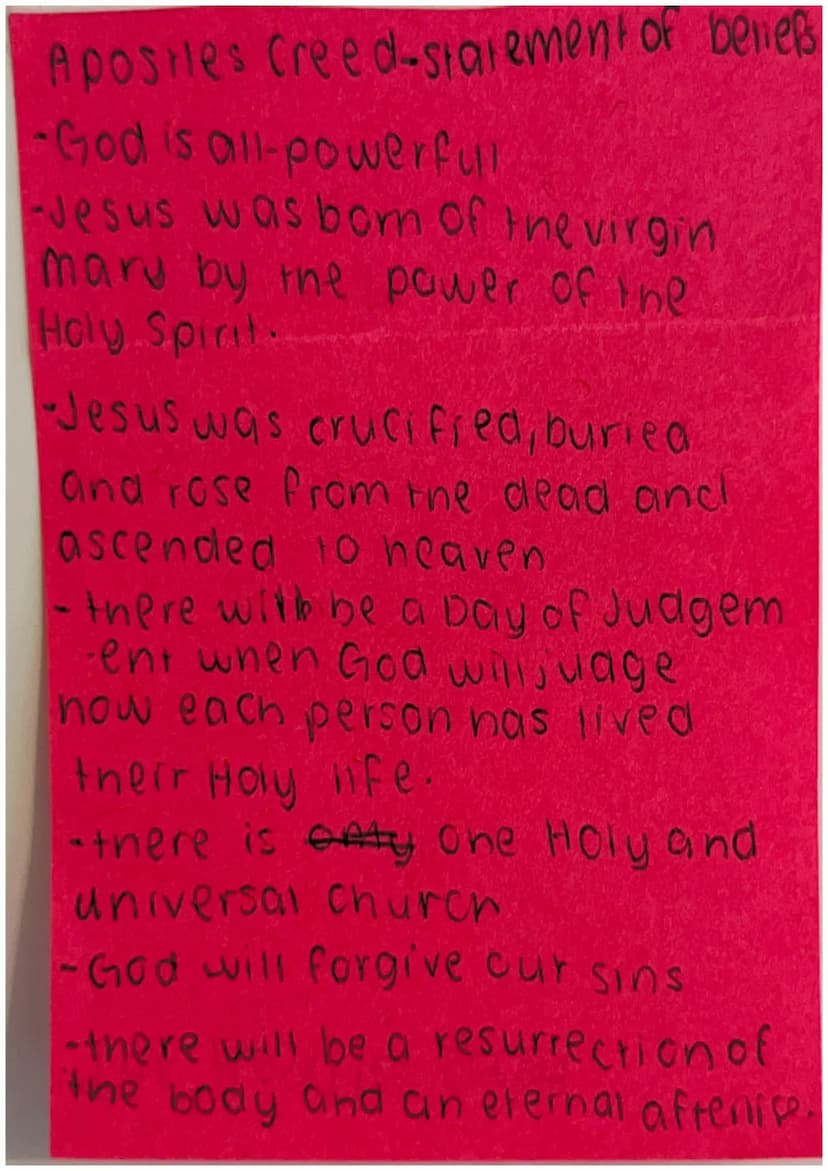 Apostles Creed-statement of beliefs
-God is all-powerful
-Jesus was born of the virgin
Mary by the power of the
Holy Spirit.
-Jesus was crucified, buried
and rose from the dead and
ascended to heaven
-there will be a Day of Judgem
-ent when God will judge
how each person has lived
their Holy life.
-there is only one Holy and
universal church
-God will forgive our sins
-there will be a resurrection of
the body and an eternal afterlife.